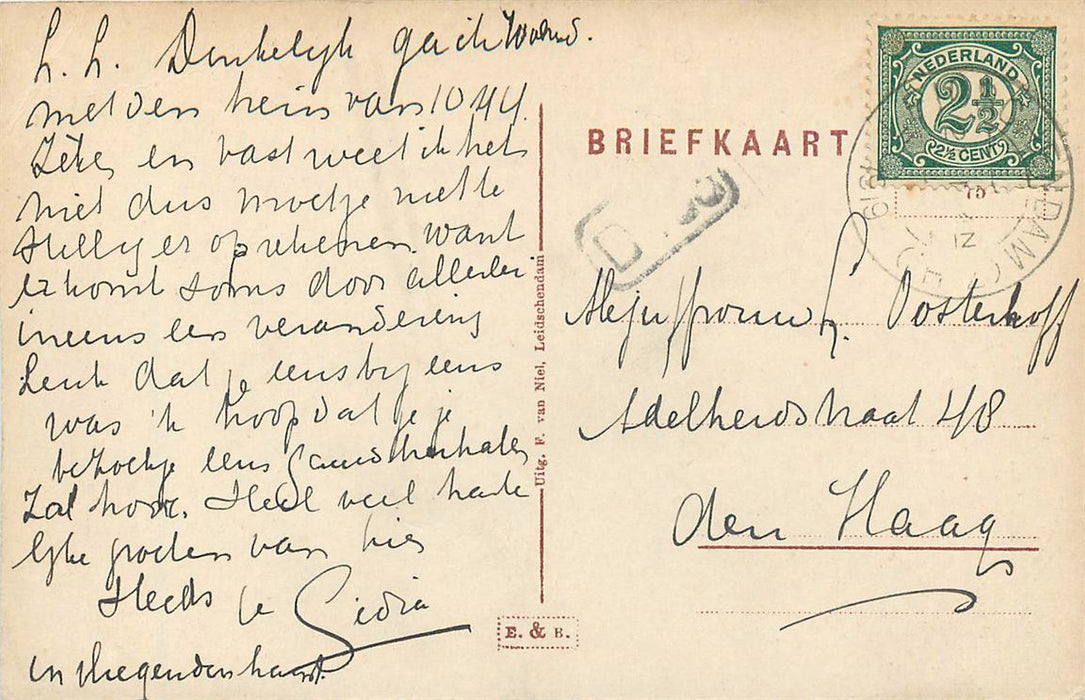 L. L. Denkelijk ga ik Woensd.
met den trein van 10 44.
Zeker en vast weet ik het
niet dus moet je niet te
stellig er op rekenen. Want
er komt soms door allerlei
ineens een verandering
Leuk dat je eens bij eens
was 'k hoop dat je je
bezoekje eens gauw herhalen
zal hoor. Heel veel harte
lijke groeten van hier
Steeds je Sidia
in vliegenden haast.
BRIEFKAART
NEDERLAND
2½
2½ CENT
Uitg. F. van Niel, Leidschendam
Mejuffrouw L. Oosterhoff
Adelheidstraat 48
den Haag
E. & B.